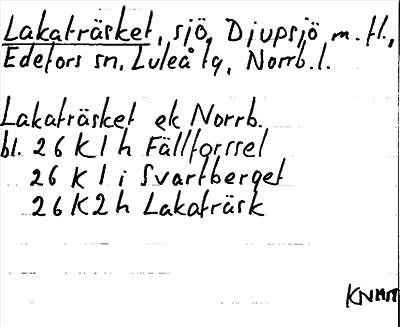 Lakaträsket, sjö, Djupsjö m. fl.,
Edefors sn, Luleå tg, Norrb. l.
Lakaträsket ek Norrb.
bl. 26 K 1 h Fällforssel
26 K 1 i Svartberget
26 K 2 h Lakaträsk